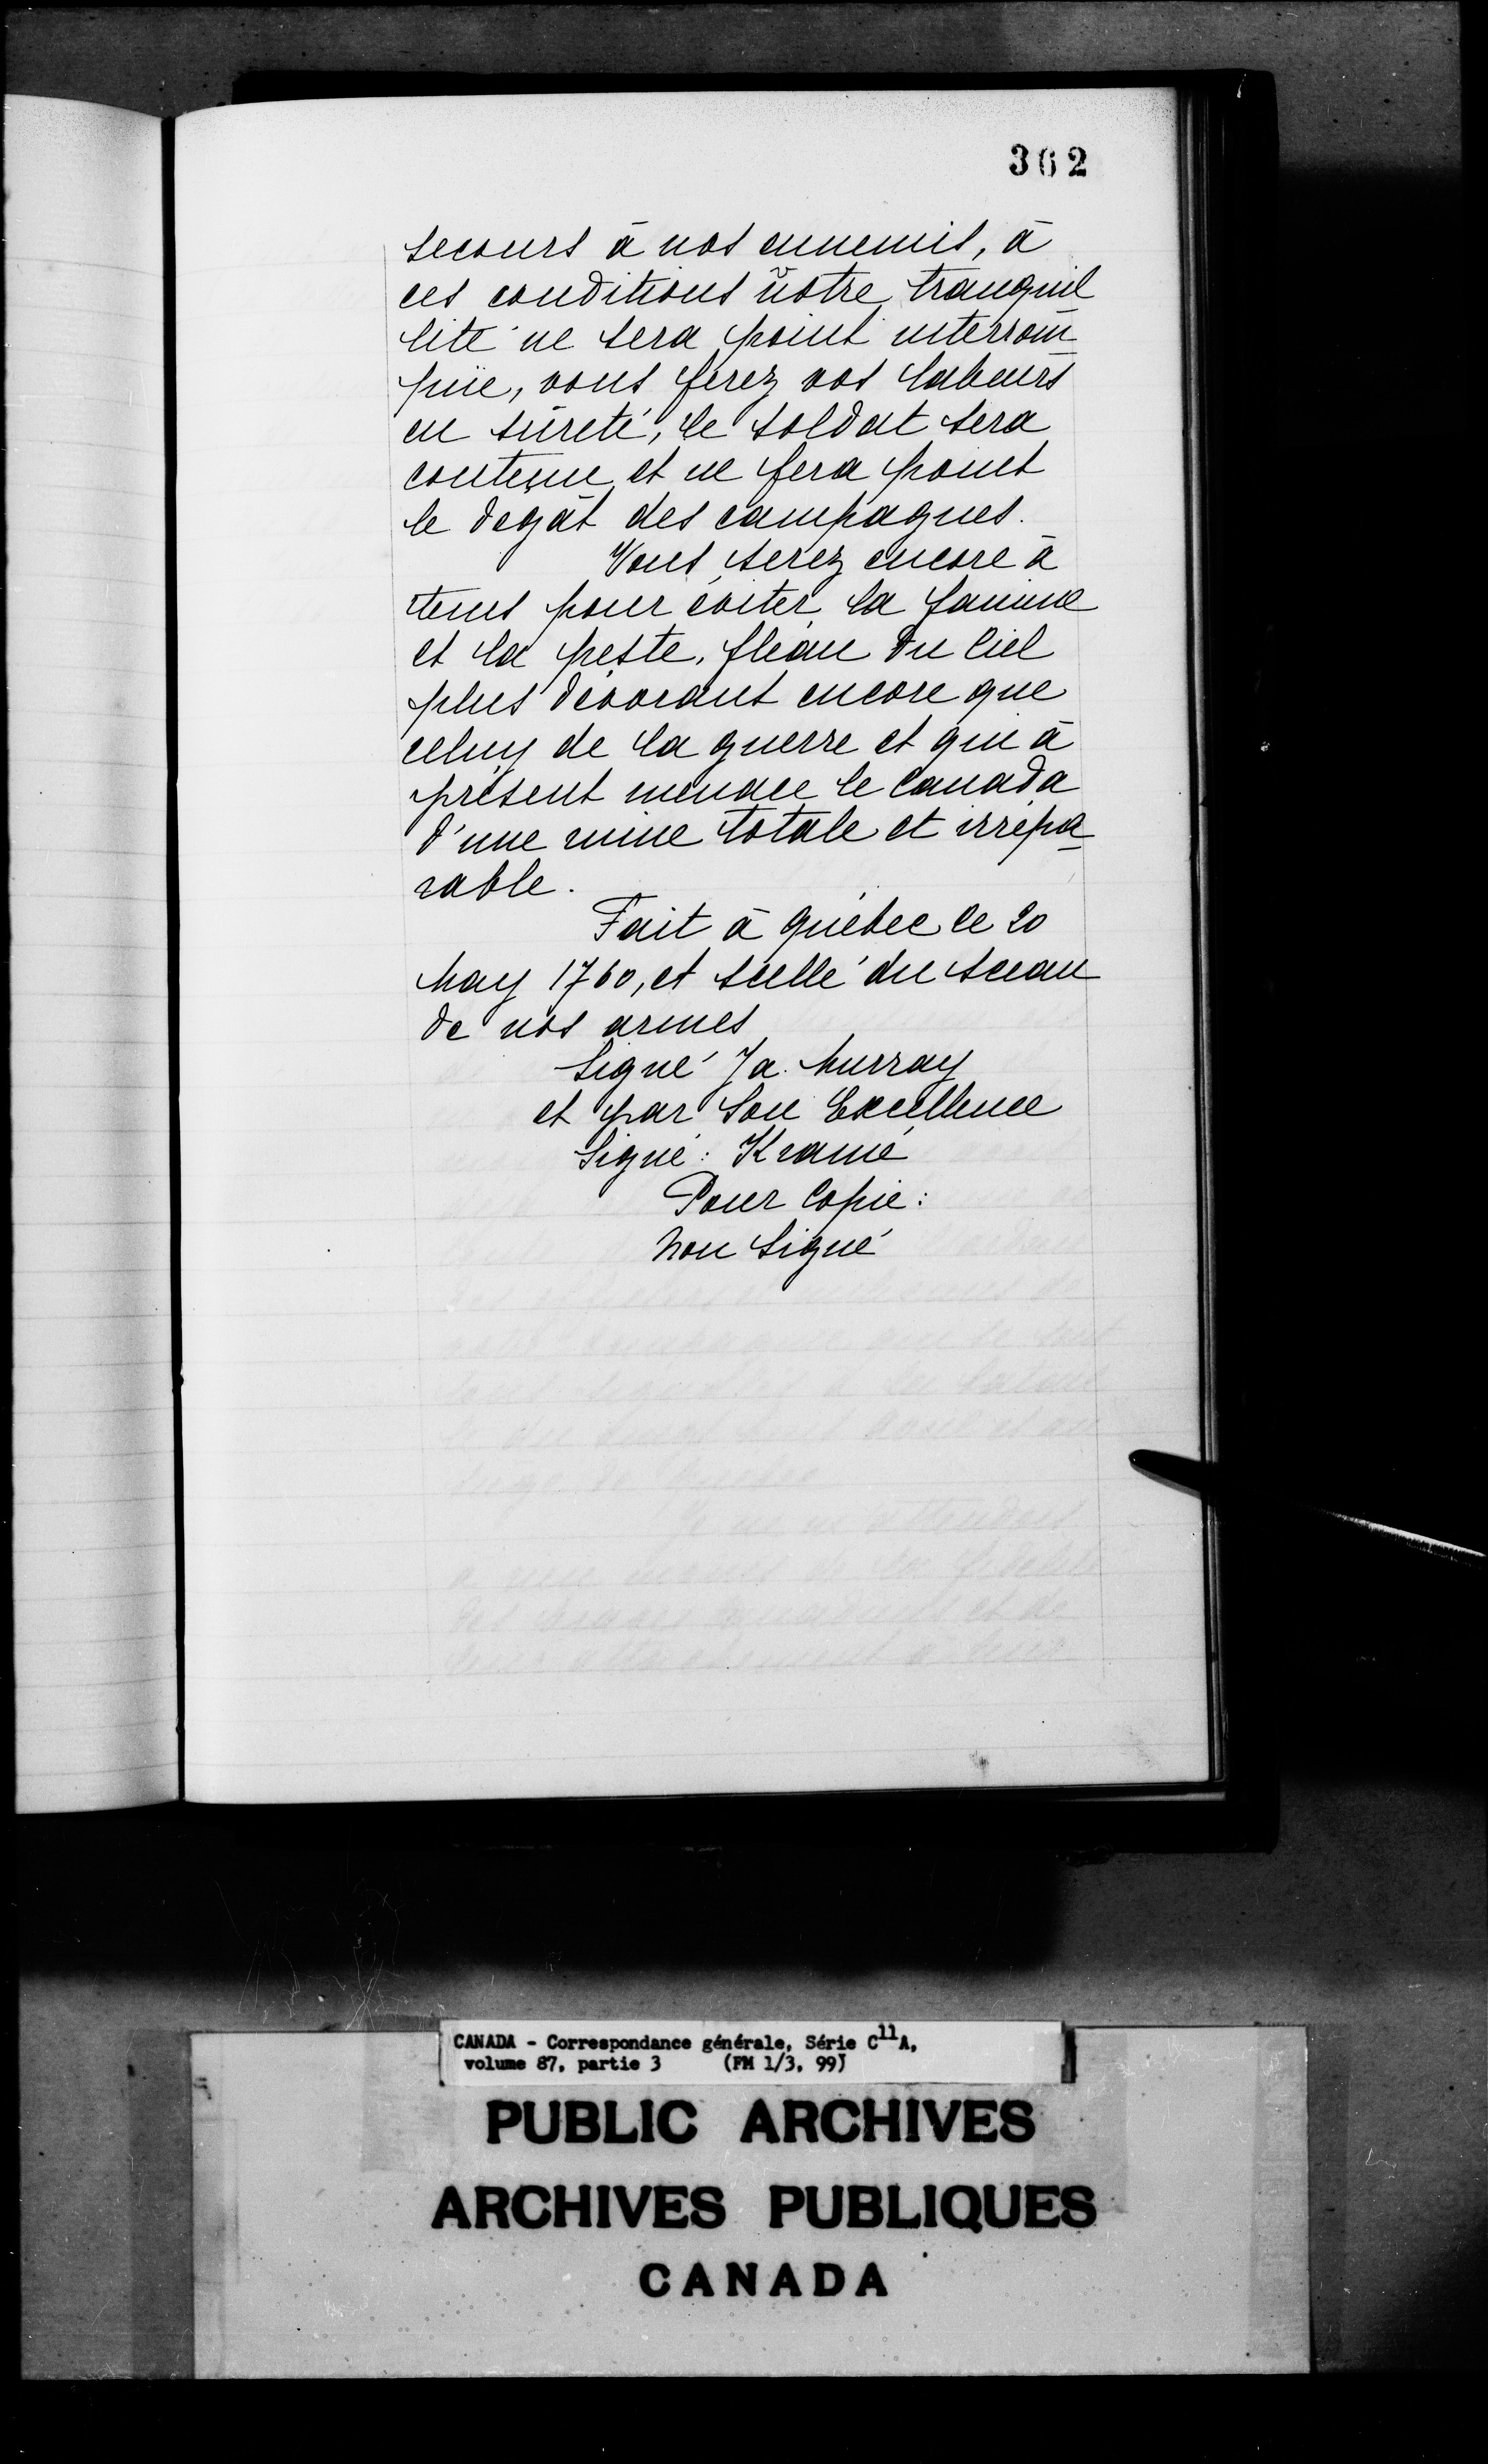 362
secours à nos ennemis, à
ces conditions vôtre tranquil
lité ne sera point interrom
püe, vous ferez vos labours
en sûreté, le soldat sera
contenu et ne fera point
le degât des campagnes.
Vous serez encore à
tems pour éviter la famine
et la peste, fléau du Ciel
plus dévorant encore que
celuy de la guerre et qui à
présent menace le Canada
d'une ruine totale et irrépa
rable.
Fait à Québec le 20
May 1760, et scellé du sceau
de nos armes
Signé Ja. Murray
et par Son Excellence
Signé: Kramé
Pour Copie:
Non Signé
CANADA - Correspondance générale, Série C11A,
volume 87, partie 3 (FM 1/3, 99)
PUBLIC ARCHIVES
ARCHIVES PUBLIQUES
CANADA